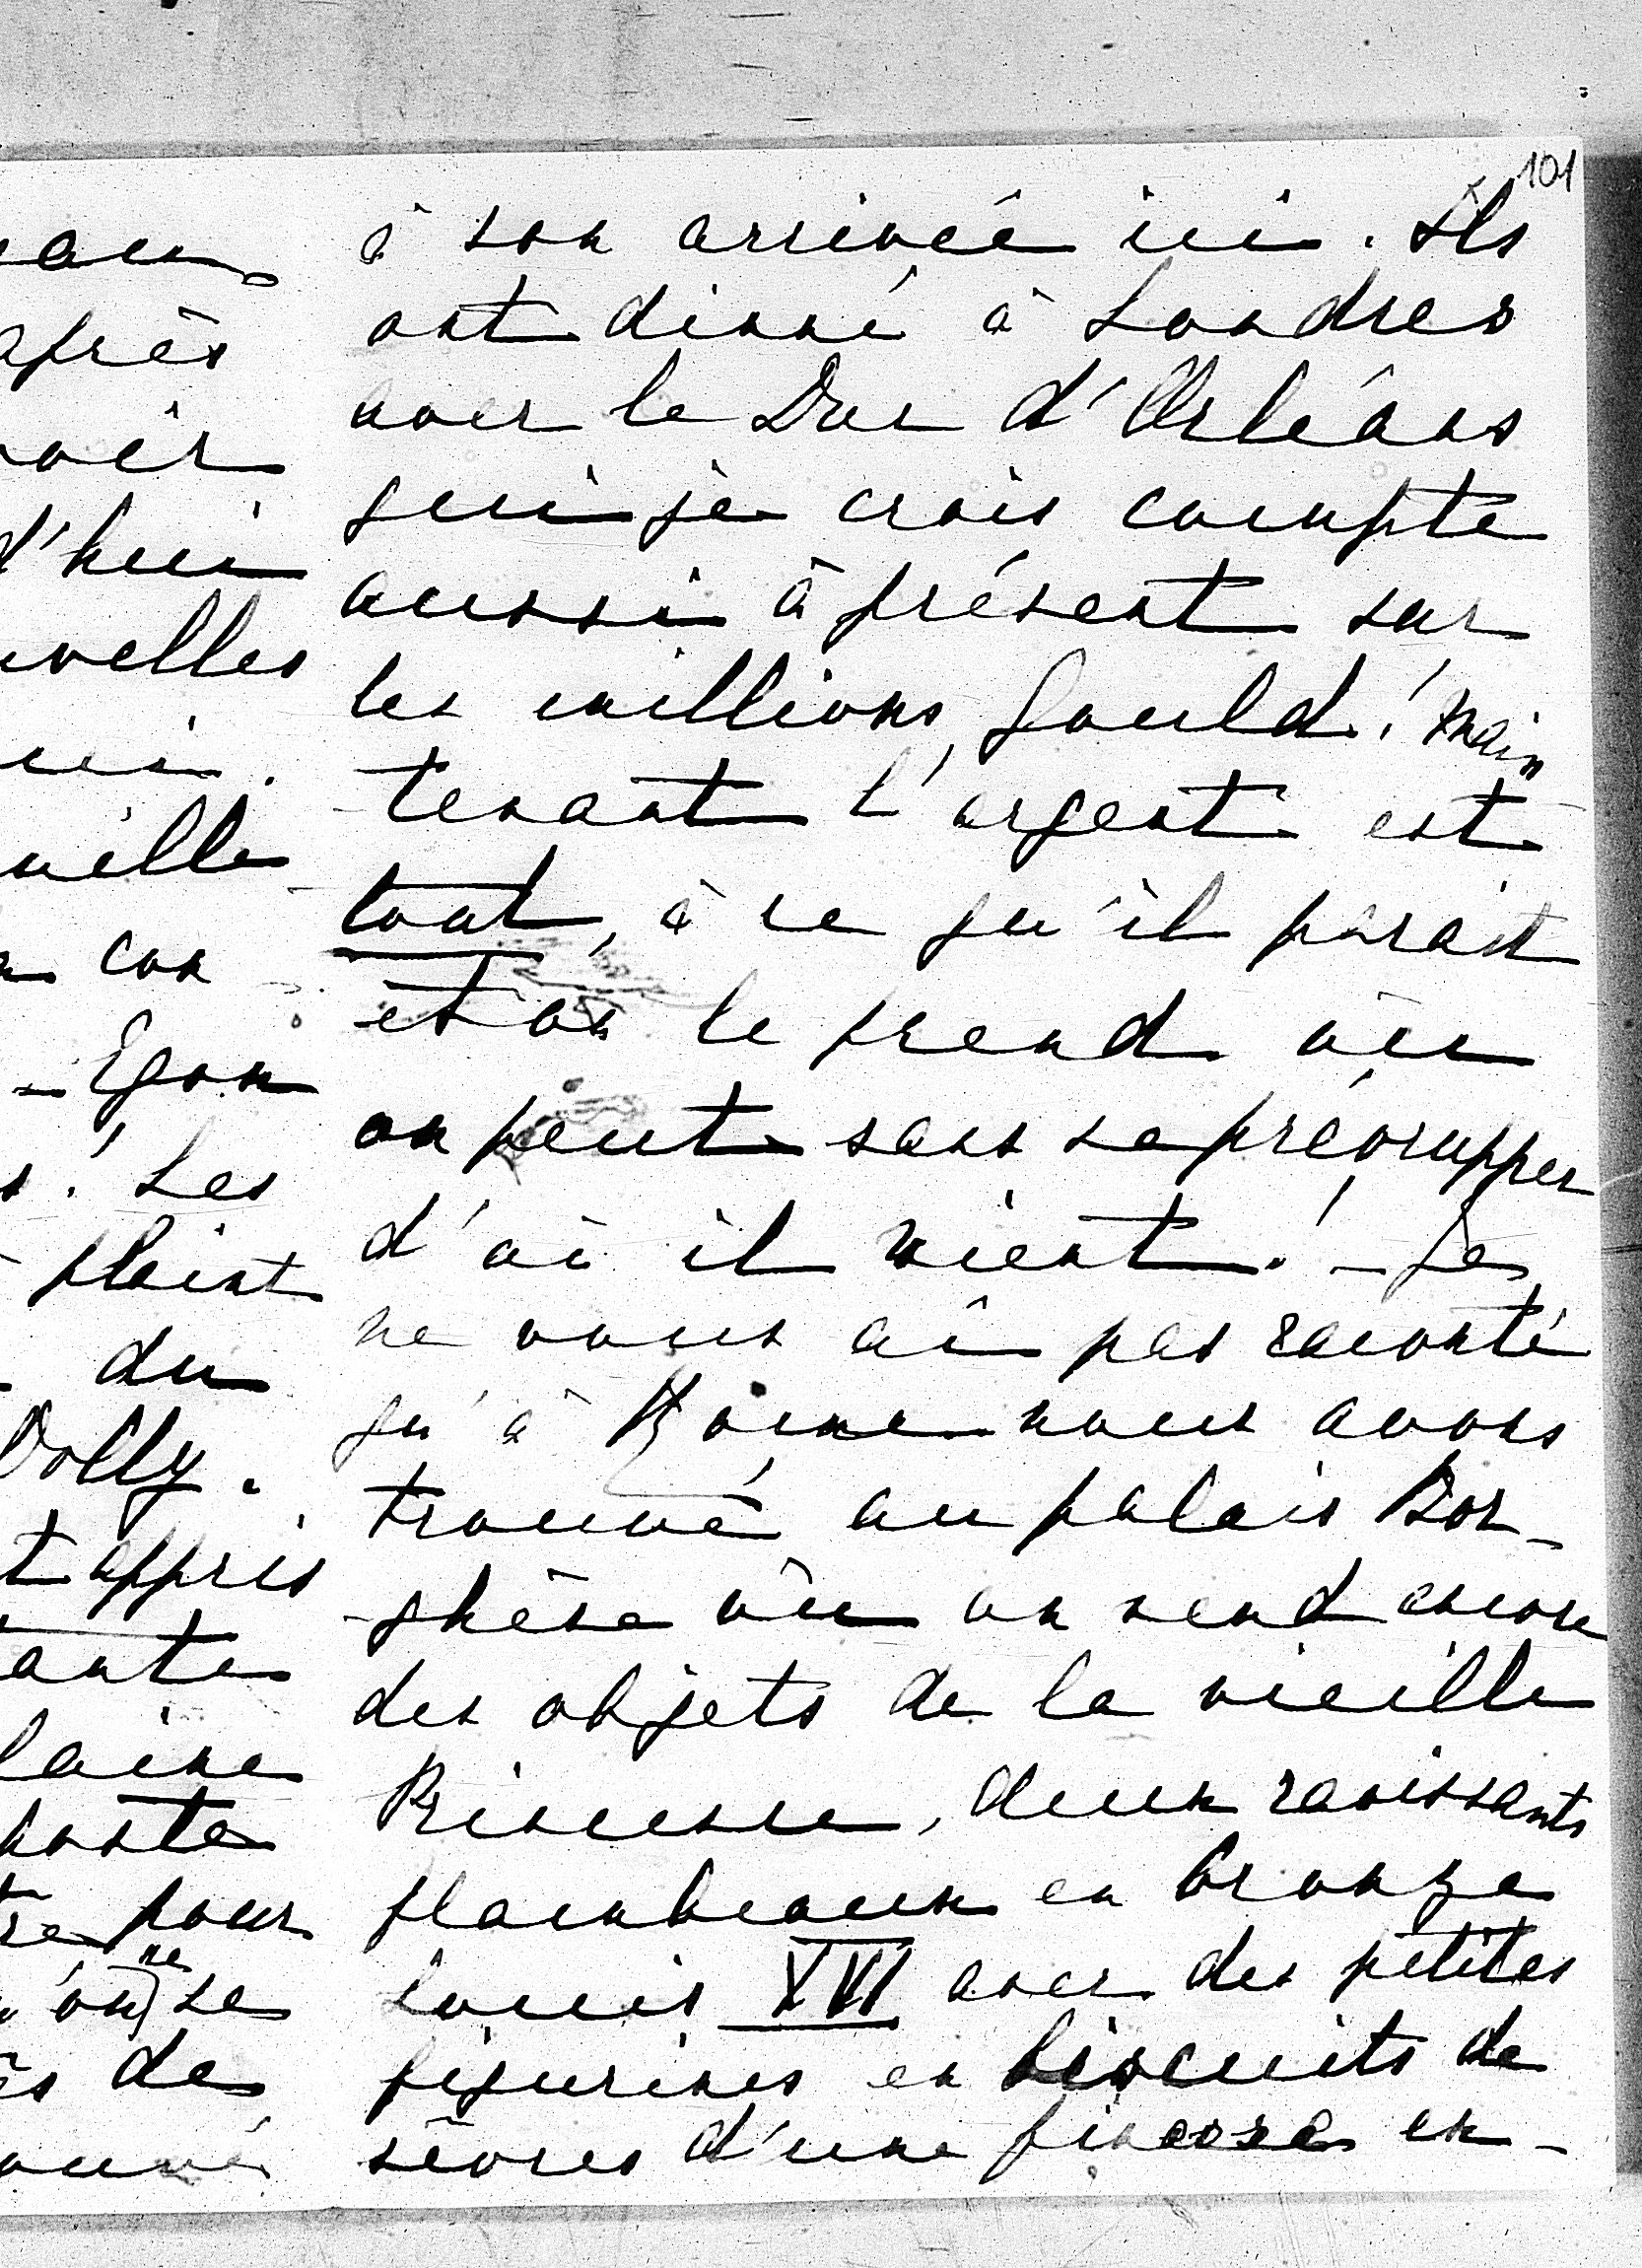 101
à son arrivée ici. Ils
ont dinné à Londres
avec le Duc d'Orléans
qui je crois compte
aussi à présent sur
les millions Gould! Main
tenant l'argent est
tout, à ce qu'il parait
et on le prend où
on peut sans se préocupper
d'où il vient! – Je
ne vous ai pas raconté
qu'à Rome nous avons
trouvé au palais Bor-
ghèse où on vend encore
des objets de la vieille
Princesse, deux ravissants
flambeaux en bronze
Louis XVI avec des petites
figurines en biscuits de
sèvres d'une finesse ex-
après
voir
d'hui
velles
Egon
! Les
plaint
du
Dolly.
appris
poste
pour
ne
on se
de